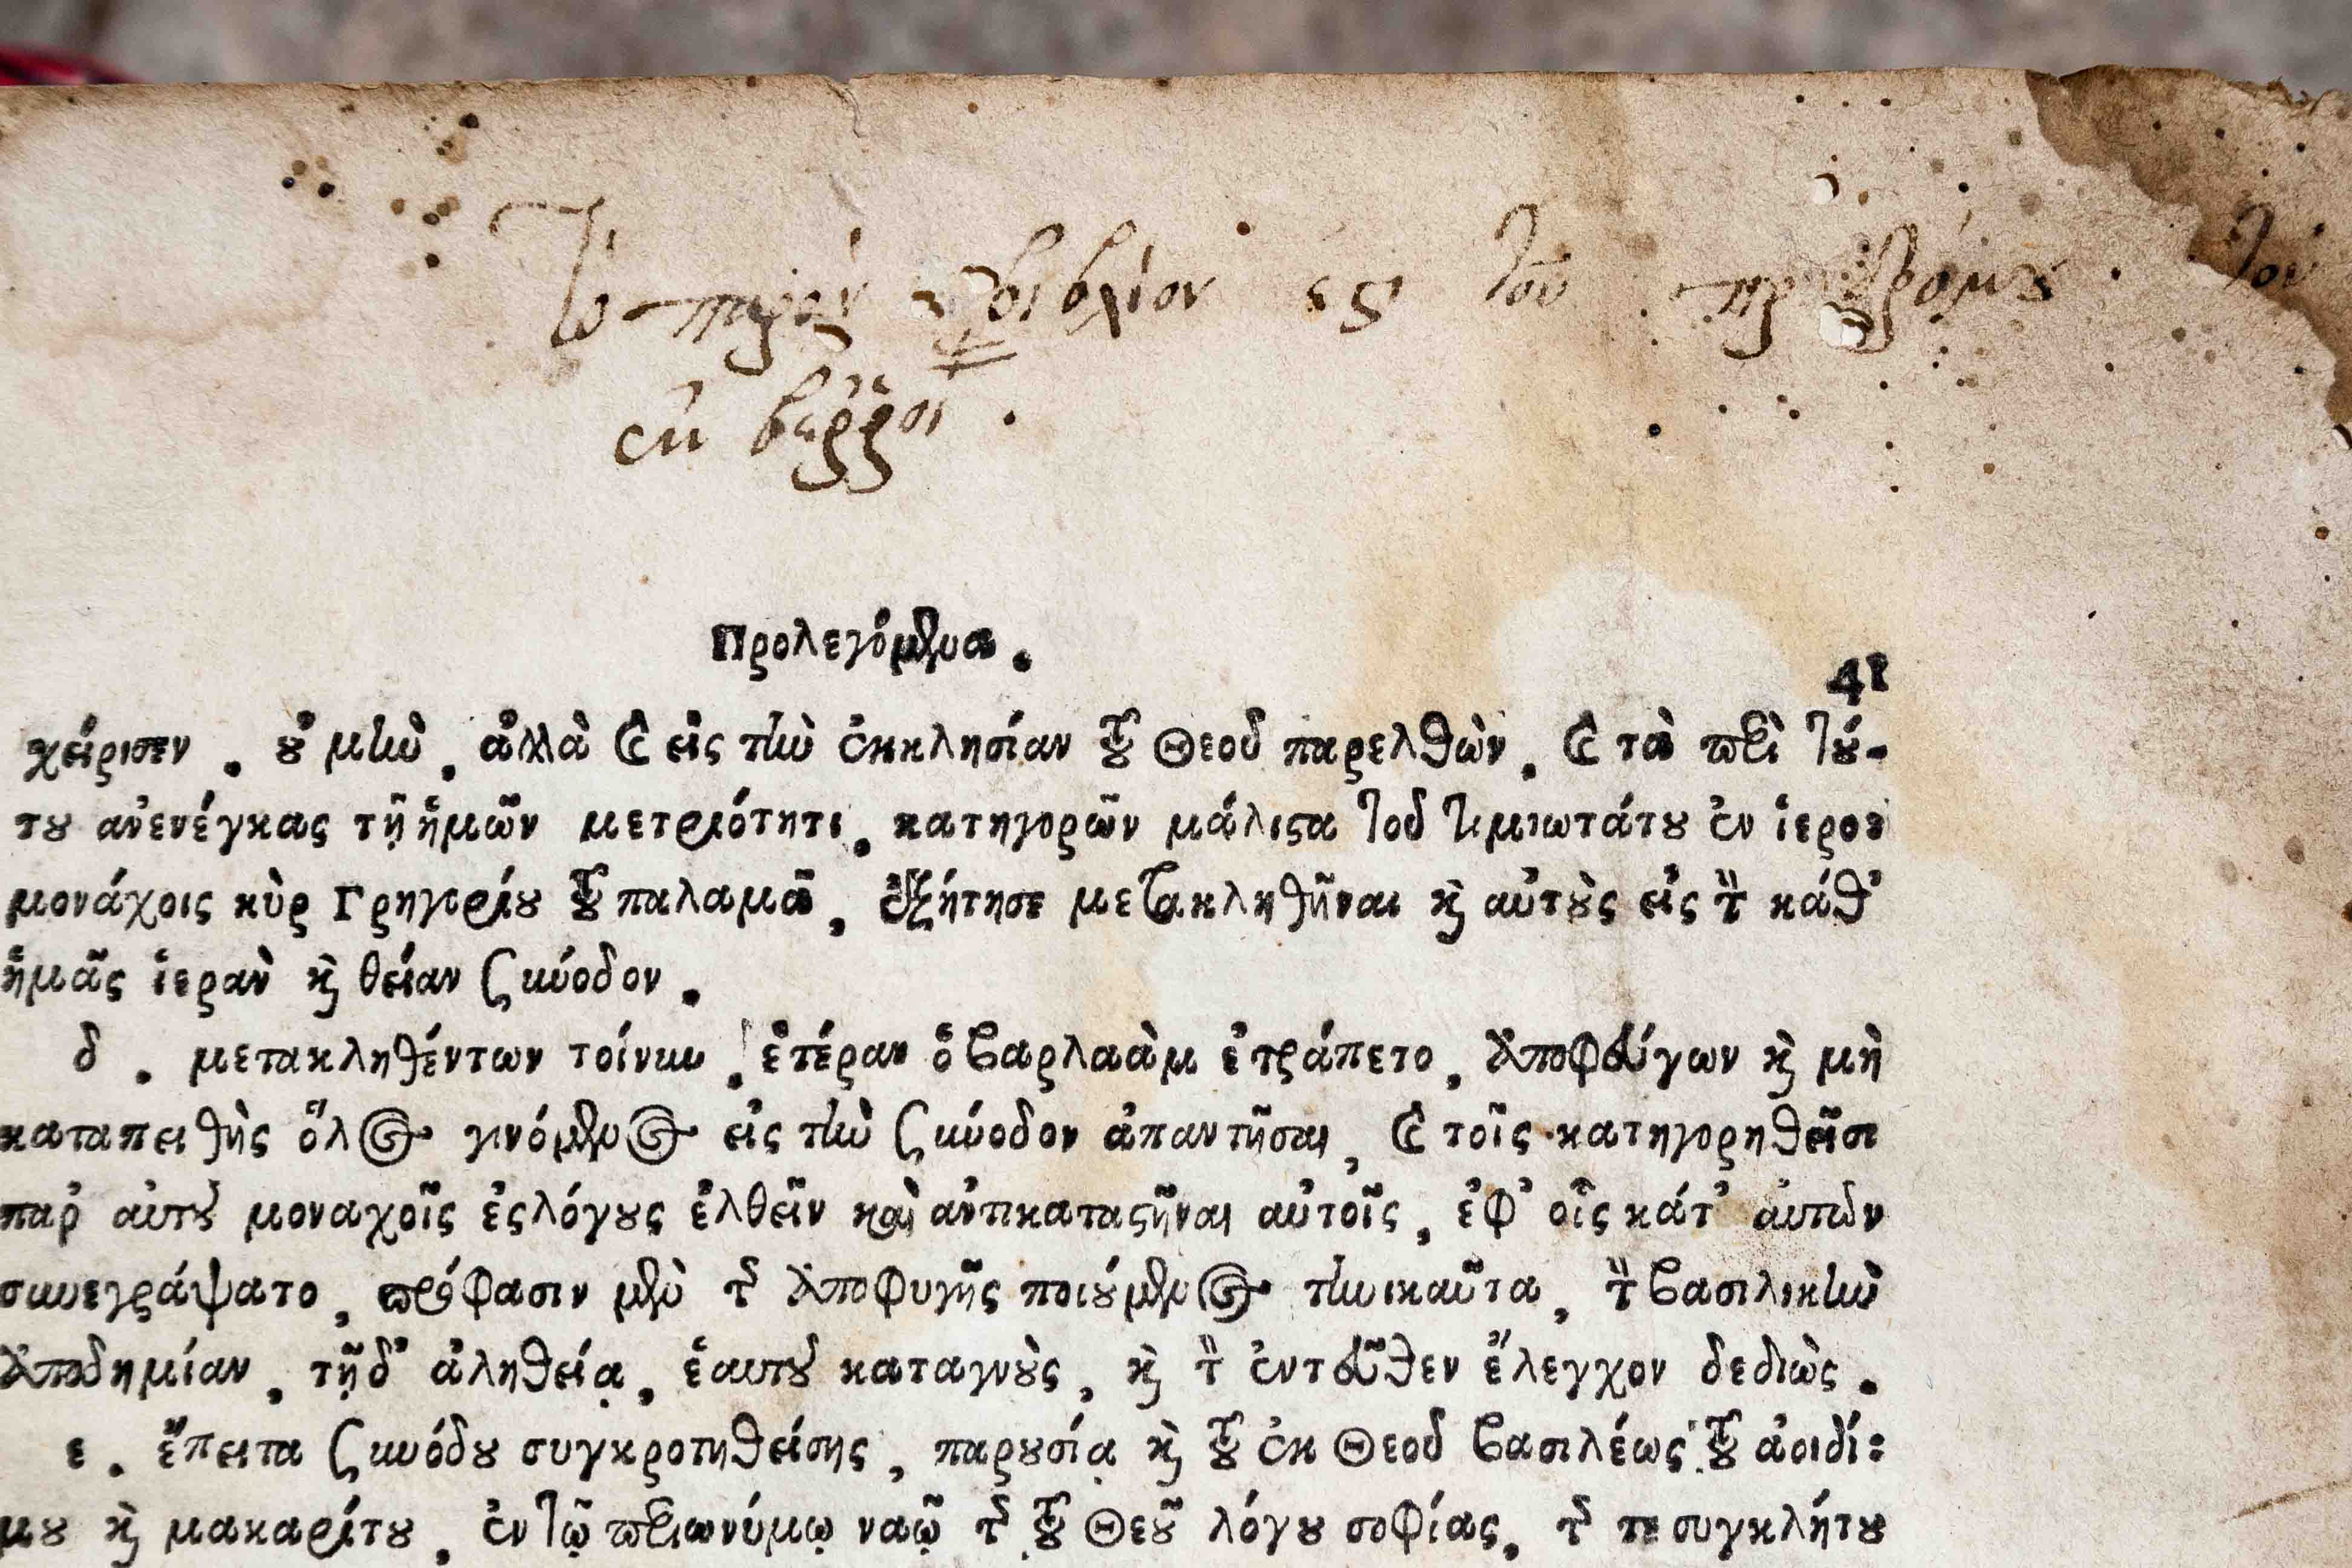 Το παρὸν βιβλίον ἐςι τοῦ προδρόμȣ. τοῦ
ἐν βερροί.
Προλεγόμενα.
41
χείρισεν. ȣ̓ μὴν, ἀλλὰ καὶ εἰς τὴν ἐκκλησίαν τȣ͂ Θεοῦ παρελθὼν, καὶ τὰ περὶ τȣ́-
τȣ ἀνενέγκας τῇ ἡμῶν μετριότητι, κατηγορῶν μάλιςα τοῦ τιμιωτάτȣ ἐν ἱερο-
μονάχοις κὺρ Γρηγορίȣ τȣ͂ παλαμᾶ, ἐξήτησε μετακληθῆναι κὶ αὐτȣ̀ς εἰς τὴν κάθ'
ἡμᾶς ἱερὰν κὶ θείαν σύνοδον.
δ. μετακληθέντων τοίνυν, ἑτέραν ὁ βαρλαὰμ ἐτράπετο, ἀποφεύγων κὶ μὴ
καταπειθὴς ὅλος γινόμενος εἰς τὴν σύνοδον ἀπαντῆσαι, καὶ τοῖς κατηγορηθεῖσι
παρ' αὐτȣ͂ μοναχοῖς ἐς λόγȣς ἐλθεῖν καὶ ἀντικαταςῆναι αὐτοῖς, ἐφ' οἷς κάτ' αὐτῶν
συνεγράψατο, πρόφασιν μὲν τῆς ἀποφυγῆς ποιȣ́μενος τηνικαῦτα, τὴν βασιλικὴν
ἀποδημίαν, τῇ δ' ἀληθείᾳ, ἑαυτȣ͂ καταγνȣ̀ς, κὶ τὸν ἐντεῦθεν ἔλεγχον δεδιὼς.
ε. ἔπειτα συνόδȣ συγκροτηθείσης, παρȣσίᾳ κὶ τȣ͂ ἐκ Θεοῦ βασιλέως τȣ͂ ἀοιδί:
μȣ κὶ μακαρίτȣ, ἐν τῷ περιωνύμῳ ναῷ τῆς τȣ͂ Θεȣ͂ λόγȣ σοφίας, τῆς τε συγκλήτȣ